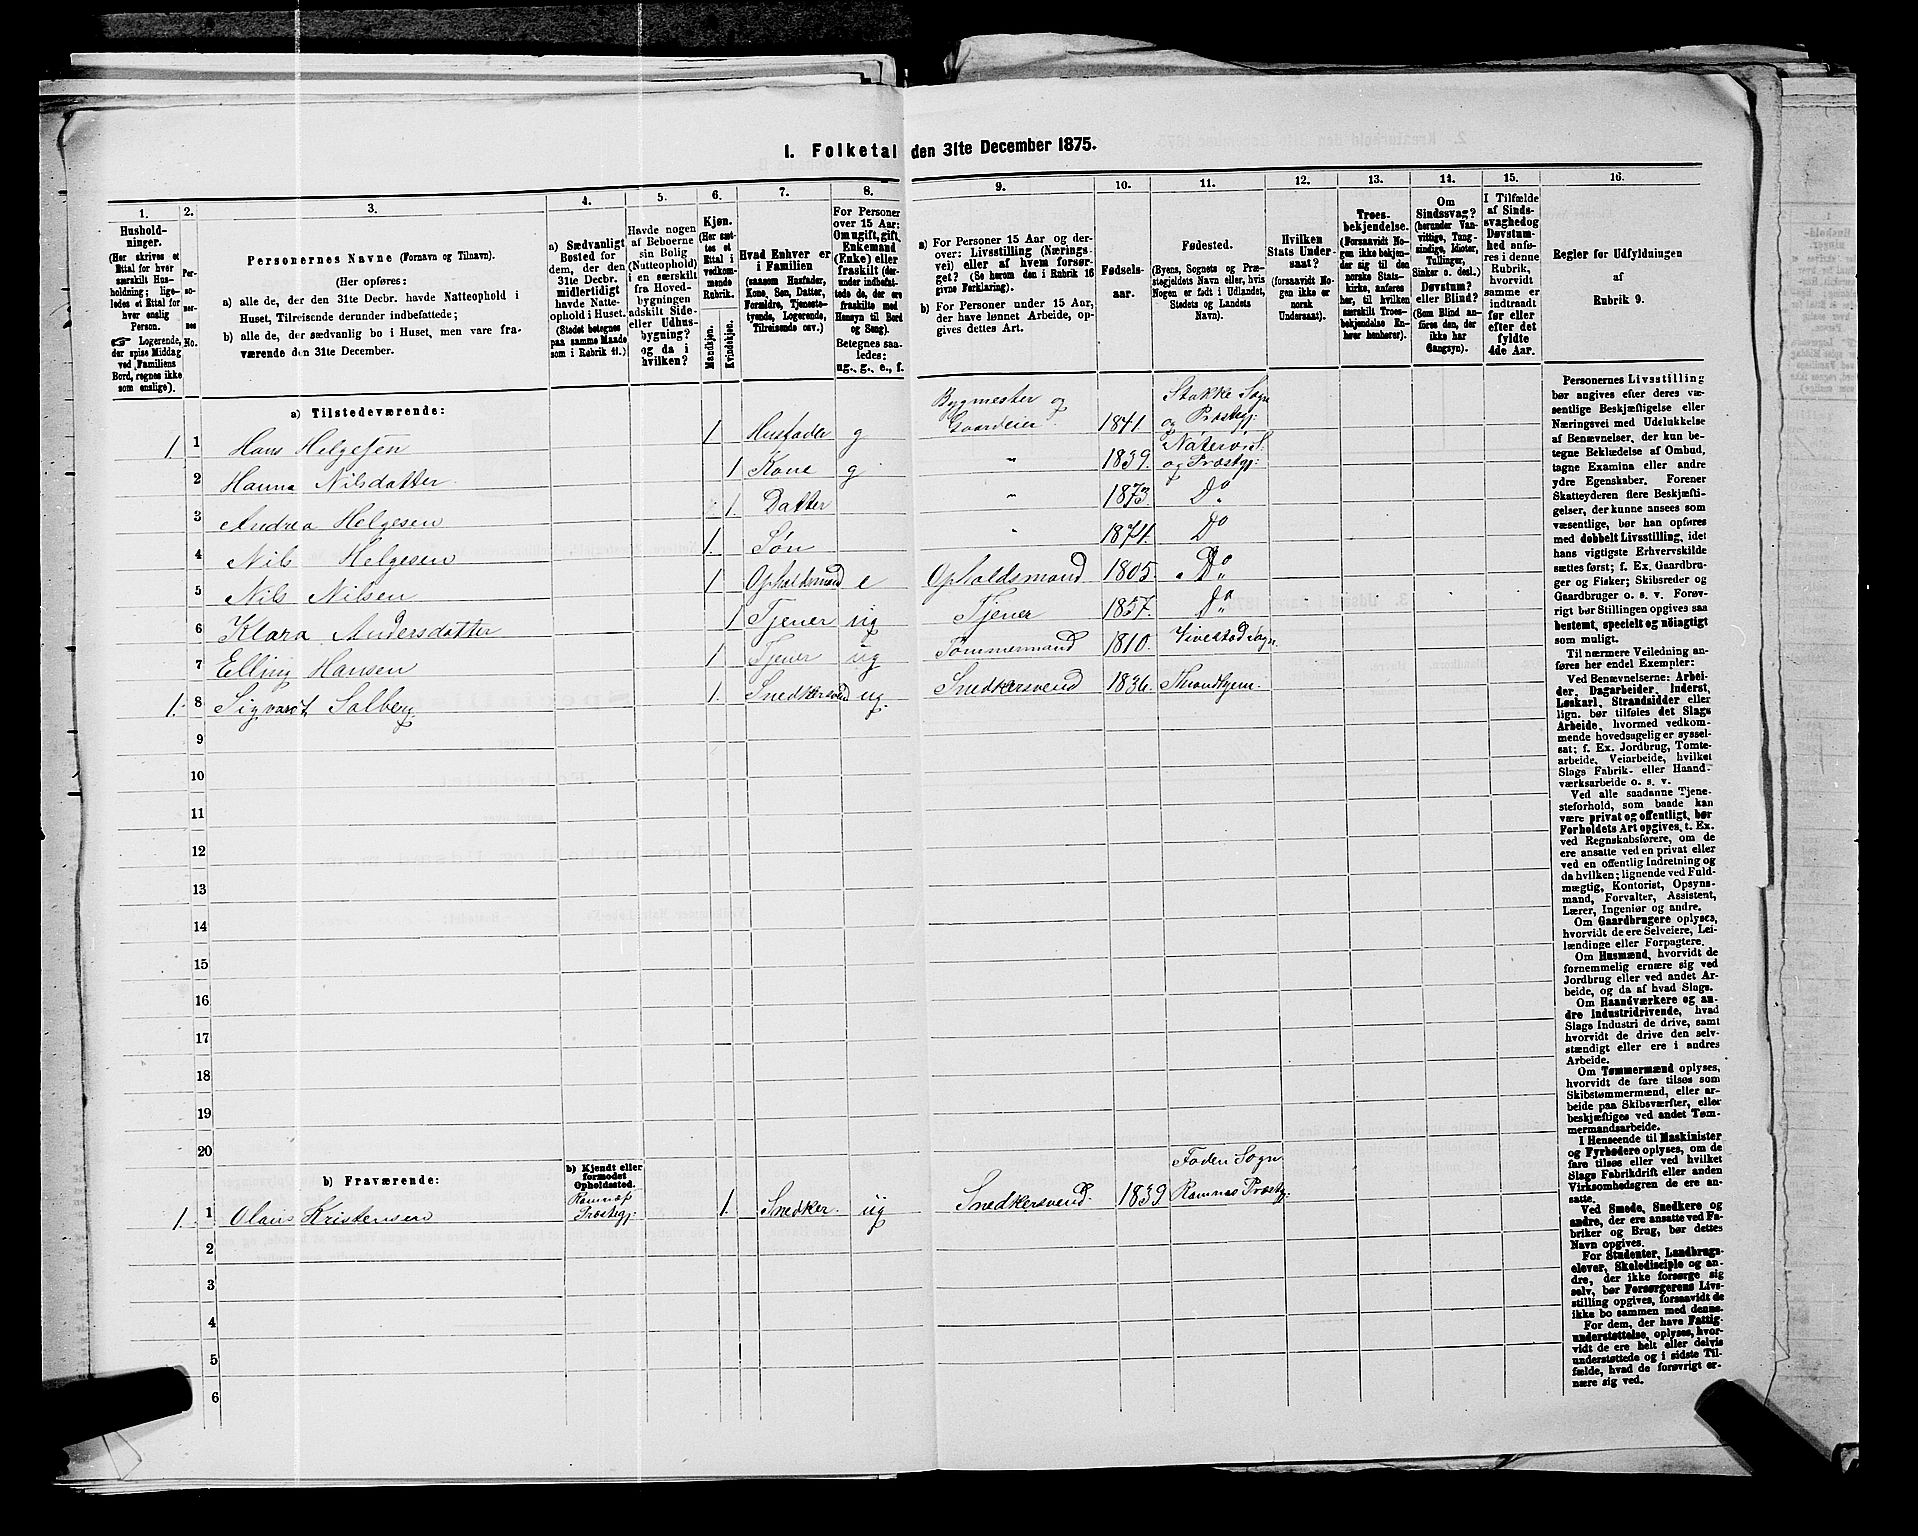 I. Folketal den 31te December 1875.
1.
2.
3.
4.
5.
6.
7.
8.
9.
10.
11.
12.
13.
14.
15.
16.
Hushold-
ninger.
(Her skrives et
Ettal for hver
særskilt Hus-
holdning; lige-
ledes et Ettal for
hver enslig
Person.
☞ Logerende,
der spise Middag
ved Familiens
Bord, regnes ikke
som enslige).
Per-
so-
ner-
nes
No.
Personernes Navne (Fornavn og Tilnavn).
(Her opføres:
a) alle de, der den 31te Decbr. havde Natteophold i
Huset, Tilreisende derunder indbefattede;
b) alle de, der sædvanlig bo i Huset, men vare fra-
værende den 31te December.
a) Sædvanligt
Bosted for
dem, der den
31te Decbr.
midlertidigt
havde Natte-
ophold i Huset.
(Stedet betegnes
paa samme Maade
som i Rubrik 11.)
Havde nogen
af Beboerne
sin Bolig
(Natteophold)
i en særskilt
fra Hoved-
bygningen
adskilt Side-
eller Udhus-
bygning?
og da i
hvilken?
Kjøn.
(Her sæt-
tes et
Ettal i
vedkom-
mende
Rubrik.
Mandkjøn.
Kvindekjøn.
Hvad Enhver er
i Familien
(saasom Husfader,
Kone, Søn, Datter,
Forældre, Tjeneste-
tyende, Logerende,
Tilreisende osv.)
For Personer
over 15 Aar:
Om ugift, gift,
Enkemand
(Enke) eller
fraskilt (der-
under indbefat-
tede de, der ere
fraskilte med
Hensyn til Bord
og Seng).
Betegnes saa-
ledes:
ug., g., e., f.
a) For Personer 15 Aar og der-
over: Livsstilling (Nærings-
vei) eller af hvem forsør-
get? (Se herom den i Rubrik 16
givne Forklaring).
b) For Personer under 15 Aar,
der have lønnet Arbeide, op-
gives dettes Art.
Fødsels-
aar.
Fødested.
(Byens, Sognets og Præ-
stegjeldets Navn eller, hvis
Nogen er født i Udlandet,
Stedets og Landets
Navn).
Hvilken
Stats Under-
saat?
(forsaavidt No-
gen ikke er
norsk
Undersaat).
Troes-
bekjendelse.
(Forsaavidt No-
gen ikke bekjen-
der sig til den
norske Stats-
kirke, anføres
her, til hvilken
Troesbekjendelse En-
hver henhører).
Om
Sindssvag?
(herunder Van-
vittige, Tung-
sindige, Idioter,
Tullinger,
Sinker o. desl.)
Døvstum?
eller Blind?
(Som Blind an-
føres den, der
ikke har
Gangsyn).
I Tilfælde
af Sinds-
svaghed og
Døvstum-
hed anfø-
res i denne
Rubrik,
hvorvidt
samme er
indtraadt
før eller
efter det
fyldte
4de Aar.
Regler for Udfyldningen
af
Rubrik 9.
a) Tilstedeværende:
1. 1 Hans Helgesen 1 Husfader g Bygmester og Gaardeier. 1841. Stokke Sogn og Præstegj:
2 Hanna Nilsdatter 1 Kone g " 1839. Nøterø S: og Præstegj:
3 Andrea Helgesen 1. Datter " 1873. Do
4 Nils Helgesen 1. Søn " 1874. Do
5 Nils Nilsen 1 Opholdsmand e Opholdsmand 1805. Do
6 Klara Andersdatter 1 Tjener ug Tjener 1857. Do
7 Elling Hansen 1 Tjener ug Tømmermand 1810. Vivestad Sogn.
1. 8 Sigvart Solberg. 1. Snedkersvend ug. Snedkersvend 1836. Throndhjem.
9
10
11
12
13
14
15
16
17
18
19
20
b) Fraværende:
b) Kjendt eller
formodet
Opholdssted.
1. 1 Olaus Kristensen Ramnæs Præstegj: 1. Snedker. ug Snedkersvend. 1839 Foden Sogn Ramnæs Præstegj:
2
3
4
5
6
Personernes Livsstilling
bør angives efter deres væ-
sentlige Beskjæftigelse eller
Næringsvei med Udelukkelse
af Benævnelser, der kun be-
tegne Beklædelse af Ombud,
tagne Examina eller andre
ydre Egenskaber. Forener
Skatteyderen flere Beskjæfti-
gelser, der kunne ansees som
væsentlige, bør han opføres
med dobbelt Livsstilling, idet
hans vigtigste Erhvervskilde
sættes først; f. Ex. Gaardbru-
ger og Fisker; Skibsreder og
Gaardbruger o. s. v. Forøv-
rigt bør Stillingen opgives saa
bestemt, specielt og nøiagtigt
som muligt.
Til nærmere Veiledning an-
føres her endel Exempler:
Ved Benævnelserne: Arbei-
der, Dagarbeider, Inderst,
Løskarl, Strandsidder eller
lign. bør tilføies det Slags
Arbeide, hvormed vedkom-
mende hovedsagelig er syssel-
sat; f. Ex. Jordbrug, Tomte-
arbeide, Veiarbeide, hvilket
Slags Fabrik- eller Haand-
værksarbeide o. s. v.
Ved alle saadanne Tjene-
steforhold, som baade kan
være privat og offentligt, bør
Forholdets Art opgives, t. Ex.
ved Regnskabsførere, om de
ere ansatte ved en privat eller
ved en offentlig Indretning og
da hvilken; lignende ved Fuld-
mægtig, Kontorist, Opsyns-
mand, Forvalter, Assistent,
Lærer, Ingeniør og andre.
Om Gaardbrugere oplyses,
hvorvidt de ere Selveiere, Lei-
lændinge eller Forpagtere.
Om Husmænd, hvorvidt de
fornemmelig ernære sig ved
Jordbrug eller ved andet Ar-
beide, og da af hvad Slags.
Om Haandværkere og an-
dre Industridrivende, hvad
Slags Industri de drive, samt
hvorvidt de drive den selv-
stændigt eller ere i andres
Arbeide.
Om Tømmermænd oplyses,
hvorvidt de fare tilsøs som
Skibstømmermænd, eller ar-
beide paa Skibsværfter, eller
beskjæftiges ved andet Tøm-
mermandsarbeide.
I Henseende til Maskinister
og Fyrbødere oplyses, om de
fare tilsøs eller ved hvilket
Slags Fabrikdrift eller anden
Virksomhedsgren de ere an-
satte.
Ved Smede, Snedkere og
andre, der ere ansatte ved Fa-
briker og Brug, bør dettes
Navn opgives.
For Studenter, Landbrugs-
elever, Skoledisciple og an-
dre, der ikke forsørge sig
selv, bør Forsørgerens Livs-
stilling opgives, forsaavidt de
ikke bo sammen med denne.
For dem, der have Fattig-
understøttelse, oplyses, hvor-
vidt de ere helt eller delvis
understøttede og i sidste Til-
fælde, hvad de forøvrigt er-
nære sig ved.